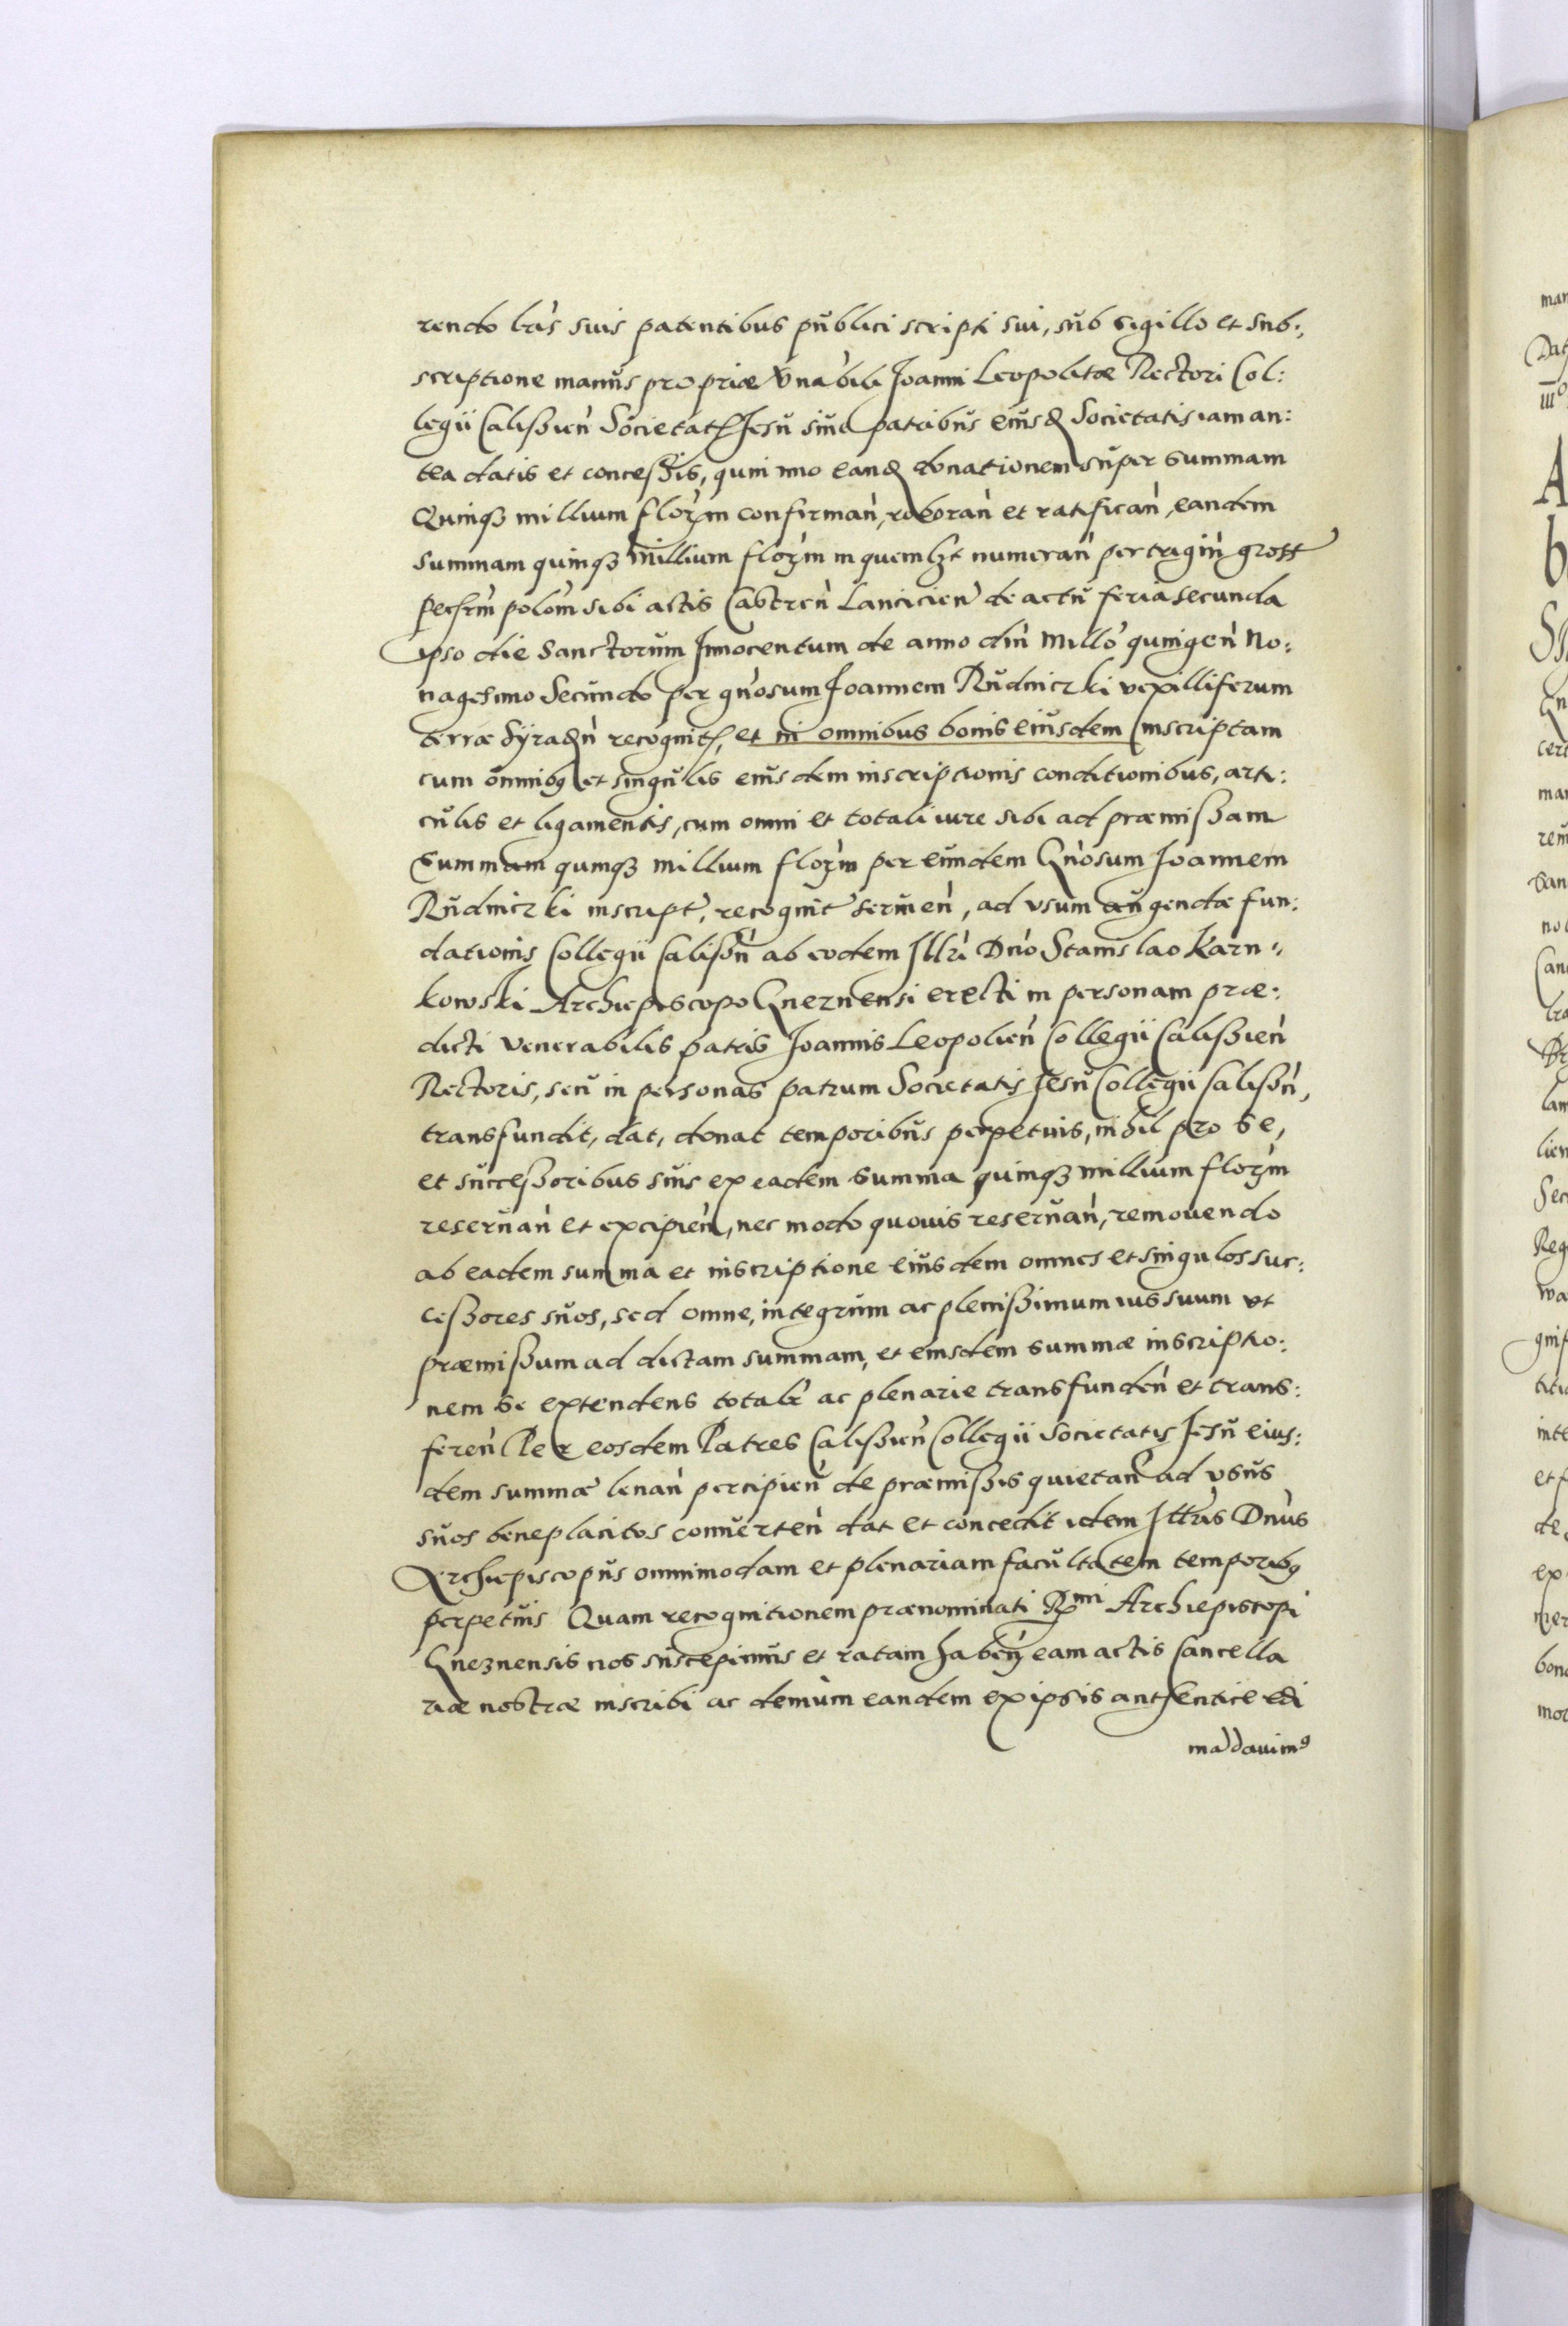 rendo lr̃as suis patentibus publici scripti sui, sub sigillo et sub:
scriptione manus propriæ Vnãbili Joanni Leopolitæ Rectori Col:
legii Calissien̄ Societatꝭ Jesu siue patribus eiusꝺ Societatis iam an:
tea datis et concessis, quin imo eanꝺ donationem super summam
Quinqꝫ millium florꝫm confirman̄, roboran̄ et ratifican̄, eandem
summam quinqꝫ millium florꝫm in quemlꝫt numeran̄ per trigin̄ gross
Pecsrm̄ polom̄ sibi actis Castren̄ Lancicien̄ de actu feria secunda
ipso die Sanctorum Innocentum de anno din̄ Millō quingen̄ No:
nagesimo Secundo per gn̄osum Joannem Rudniczki vexilliferum
terræ Syraꝺn̄ recognitꝭ, et in omnibus bonis eiusdem inscriptam
cum omnibꝫ et singulis eiusdem inscriptionis conditionibus, arti:
culis et ligamentis, cum omni et totali iure sibi ad præmissam
summam quinqꝫ millium florꝫm per eundem Gn̄osum Joannem
Rudniczki inscript̄, recognit̄ seruien̄, ad vsum augendæ fun:
dationis Collegii Calisn̄ ab eodem Illr̄i Dn̄o Stanislao Karn:
kowski Archiepiscopo Gneznensi erecti in personam præ:
dicti Venerabilis patris Joannis Leopolien̄ Collegii Calissien̄
Rectoris, seu in personas patrum Societatis Jesu Collegii Calisn̄,
transfundit, dat, donat temporibus perpetuis, nihil pro se,
et successoribus suis ex eadem summa quinqꝫ millium florꝫm
reseruan̄ et excipien̄, nec modo quouis reseruan̄, remouendo
ab eadem summa et inscriptione eiusdem omnes et singulos suc:
cessores suos, sed omne, integrum ac plenissimum ius suum vt
præmissum ad dictam summam, et eiusdem summæ inscriptio:
nem se extendens totalr̄ ac plenarie transfunden̄ et trans:
feren̄ Per eosdem Patres Calissien̄ Collegii Societatis Jesu eius:
dem summæ leuan̄ percipien̄ de præmissis quietan̄ ad vsus
suos beneplacitos conuerten̄ dat et concedit idem Illr̄is Dn̄us
Archiepiscopus omnimodam et plenariam facultatem temporibꝫ
perpetuis Quam recognitionem prænominati Rmi Archiepiscopi
Gneznensis nos suscepimus et ratam haben̄ eam actis Cancella
riæ nostræ inscribi ac demum eandem ex ipsis authentice edi
mãdauimꝰ